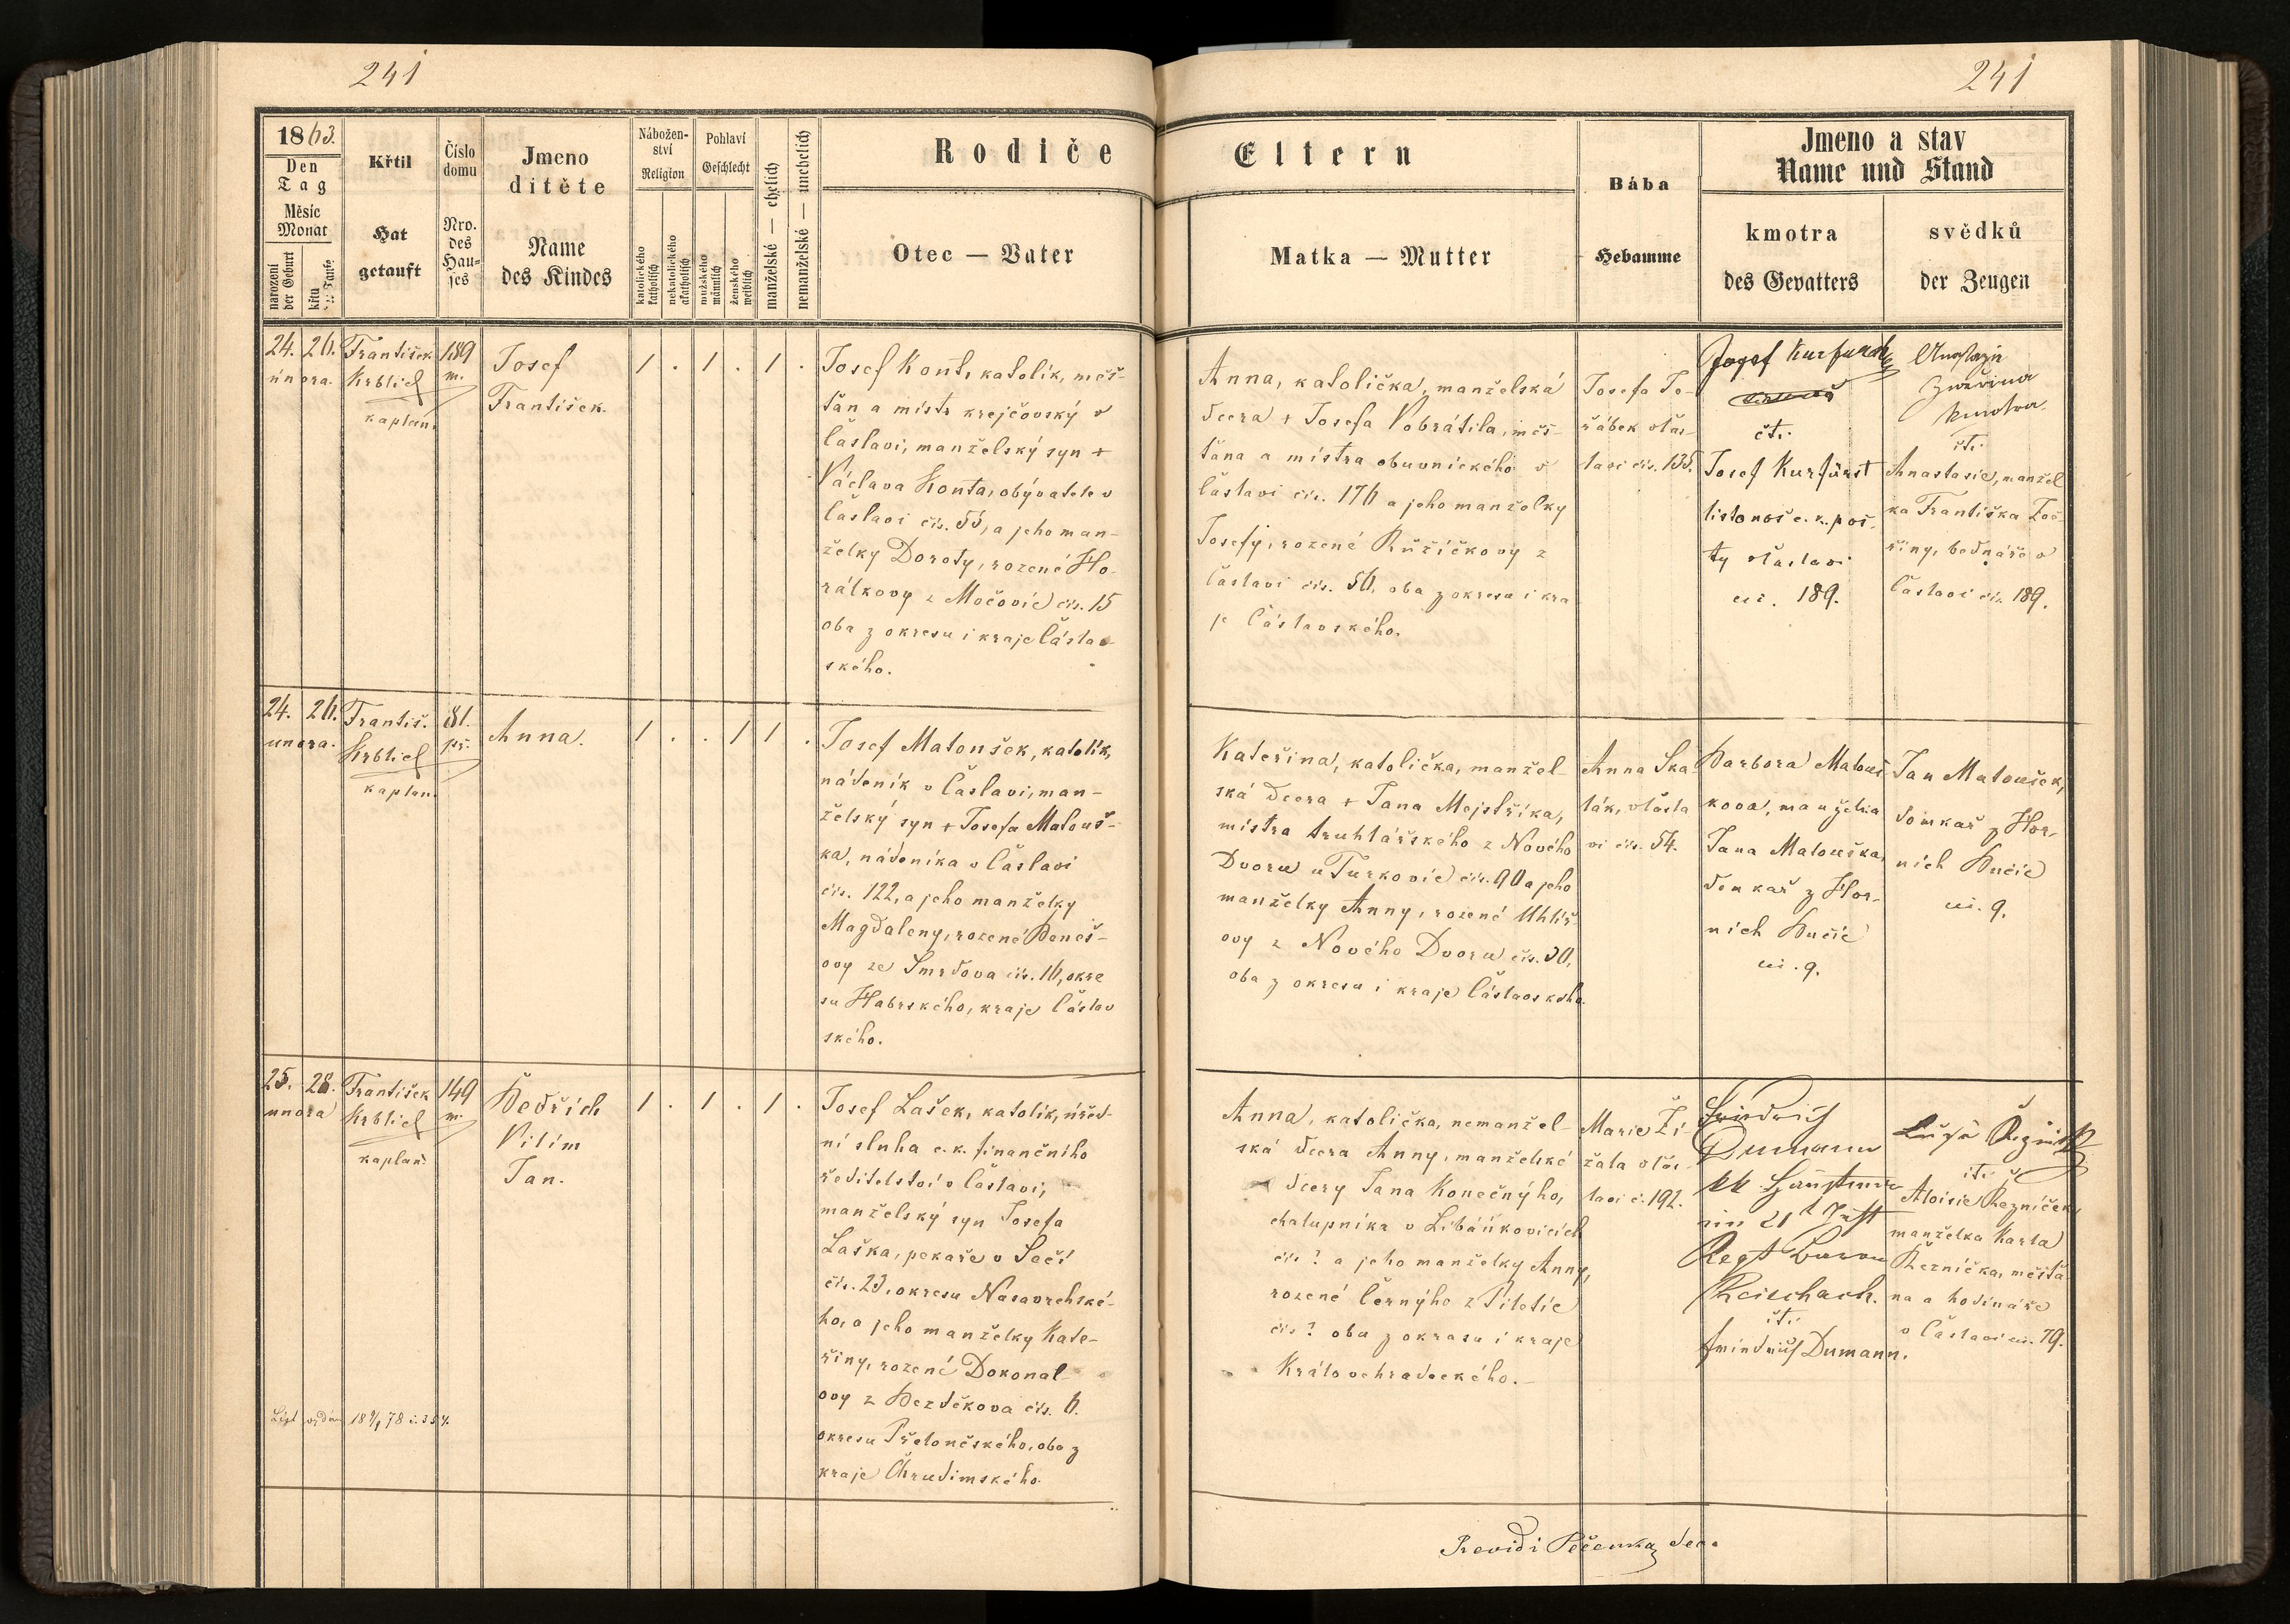 241
241
1863.
Den
Tag
Měsíc
Monat
narození
der Geburt
křtu
Křtil
Hat
getauft
Číslo
domu
Nro.
des
Hau-
ses
Jmeno
dítěte
Name
des Kindes
Nábožen-
ství
Religion
katolického
katholisch
nekatolického
akatholisch
Pohlaví
Geschlecht
mužského
männlich
ženského
weiblich
manželské — ehelich
nemanželské — unehelich
Rodiče
Otec — Vater
Eltern
Matka — Mutter
Bába
Hebamme
Jmeno a stav
Name und Stand
kmotra
des Gevatters
svědků
der Zeugen
24. 26.
února.
František
Krblich
kaplan.
189
m.
Josef
František.
1 . 1 . 1 .
Josef Kont, katolík, měš-
ťan a mistr krejčovský v
Čáslavi, manželský syn +
Václava Konta, obývatele v
Čáslavi čís. 55, a jeho man-
želky Doroty, rozené Ho-
rálkovy z Močovic čís. 15
oba z okresu i kraje Čáslav-
ského.
Anna, katolička, manželská
dcera + Josefa Vobrátila, měš-
ťana a mistra obuvnického v
Čáslavi čís. 176 a jeho manželky
Josefy, rozené Růžičkovy z
Čáslavi čís. 56, oba z okresu i kra
je Čáslavského.
Josefa Je-
řábek v Čás-
lavi čís. 135.
Josef Kurfürst
čti:
Josef Kurfürst
listonoš c. k. poš-
ty v Čáslavi
čís. 189.
Anastazie
Zwěřina
kmotra.
čti:
Anastasie, manžel
ka Františka Zvě-
řiny, bednáře v
Čáslavi čís. 189.
24. 26.
unora.
Františ.
Krblich
kaplan.
81.
př.
Anna.
1 . . 1 1 .
Josef Matoušek, katolík,
nádeník v Čáslavi, man-
želský syn + Josefa Matouš-
ka, nádeníka v Čáslavi
čís. 122, a jeho manželky
Magdaleny, rozené Beneš-
ovy ze Smrdova čís. 16, okre
su Habrského, kraje Čáslav
ského.
Kateřina, katolička, manžel-
ská dcera + Jana Mejstříka,
mistra truhlářského z Nového
Dvoru u Turkovic čís. 90 a jeho
manželky Anny, rozené Uhlíř-
ovy z Nového Dvoru čís. 30,
oba z okresu i kraje Čáslavského.
Anna Ska
lák, v Čásla
vi čís. 54.
Barbora Matouš
kova, manželka
Jana Matouška,
domkař z Hor-
nich Bučic
čís. 9.
Jan Matoušek,
domkař z Hor-
nich Bučic
čís. 9.
25. 28.
unora
František
Krblich
kaplan.
149
m.
Bedřich
Vilím
Jan.
1 . 1 . 1 .
Josef Lašek, katolík, úřed-
ní sluha c. k. finančního
ředitelství v Čáslavi,
manželský syn Josefa
Laška, pekaře v Seči
čís. 23, okresu Nasavrchské-
ho, a jeho manželky Kate-
řiny, rozené Dokonal-
ovy z Bezděkova čís. 6.
okresu Přeloučského, oba z
kraje Chrudimského.
Anna, katolička, nemanžel-
ská dcera Anny, manželské
dcery Jana Konečnýho,
chalupníka v Libáňkovicích
čís ? a jeho manželky Anny,
rozené Černýho z Piletic
čís ? oba z okresu i kraje
Královohradeckého.
Marie Ži-
žala v Čás-
lavi č. 192.
Friedrich
Dumann
kk Hauptmann
im 21t Inft
Regt Baron
Reischach.
čti:
Friedrich Dumann.
čti:
Aloisie Řezníček,
manželka Karla
Řezníčka, měšťa-
na a hodináře
v Čáslavi čís. 79.
List vydán
Revidi Pečenka, děk.